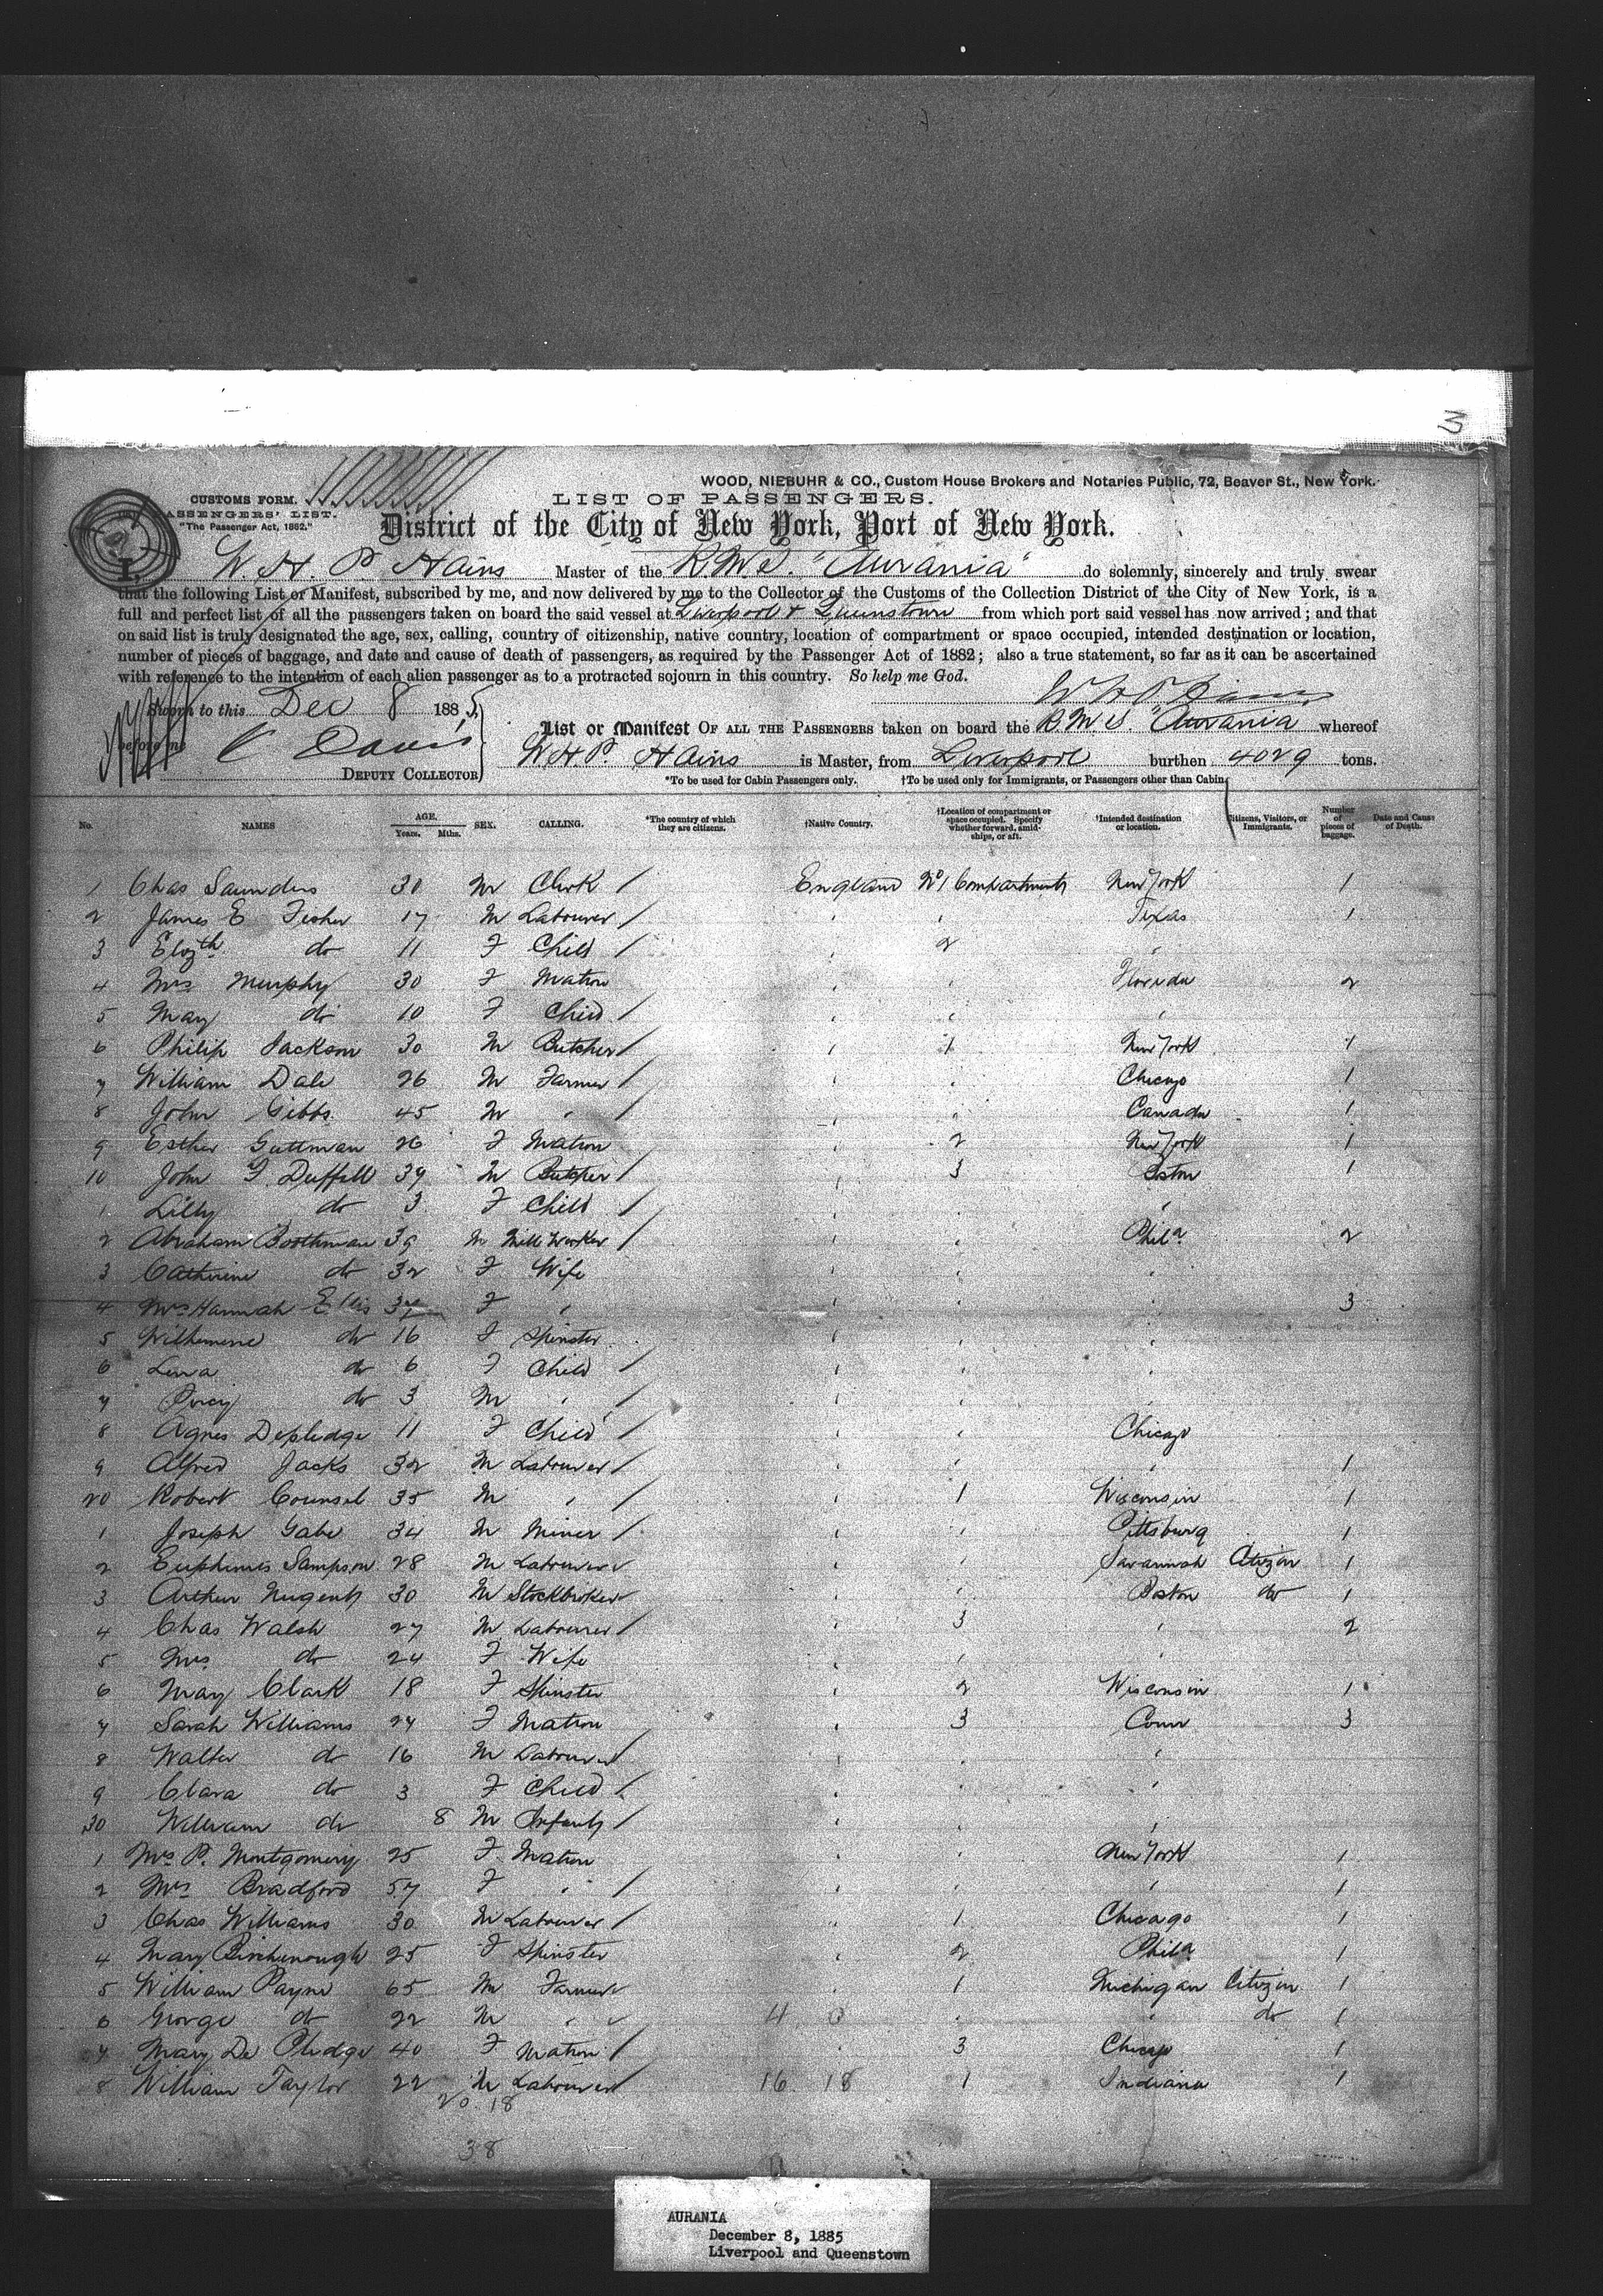 3
WOOD, NIEBUHR & CO., Custom House Brokers and Notaries Public, 72, Beaver St., New York.
CUSTOMS FORM.
LIST OF PASSENGERS.
PASSENGERS' LIST.
"The Passenger Act, 1882."
District of the City of New York, Port of New York.
I, W. H. P. Hains Master of the R.M.S. "Aurania" do solemnly, sincerely and truly swear
that the following List or Manifest, subscribed by me, and now delivered by me to the Collector of the Customs of the Collection District of the City of New York, is a
full and perfect list of all the passengers taken on board the said vessel at Liverpool & Queenstown from which port said vessel has now arrived; and that
on said list is truly designated the age, sex, calling, country of citizenship, native country, location of compartment or space occupied, intended destination or location,
number of pieces of baggage, and date and cause of death of passengers, as required by the Passenger Act of 1882; also a true statement, so far as it can be ascertained
with reference to the intention of each alien passenger as to a protracted sojourn in this country. So help me God.
W H P Hains
Sworn to this Dec 8 1885
before me C Davis
DEPUTY COLLECTOR
List or Manifest OF ALL THE PASSENGERS taken on board the R.M.S. "Aurania whereof
W.H.P. Hains is Master, from Liverpool burthen 4029 tons.
*To be used for Cabin Passengers only. †To be used only for Immigrants, or Passengers other than Cabin.
No. NAMES AGE. Years. Mths. SEX. CALLING. *The country of which they are citizens. †Native Country. †Location of compartment or space occupied. Specify whether forward, amidships, or aft. †Intended destination or location. Citizens, Visitors, or Immigrants. Number of pieces of baggage. Date and Cause of Death.
1 Chas Saunders 30 M Clerk / England No 1 Compartment New York 1
2 James E Fisher 17 M Labourer / " " Texas 1
3 Elizth do 11 F Child / " 2 "
4 Mrs Murphy 30 F Matron " " Florida 2
5 May do 10 F Child / " " "
6 Philip Jackson 30 M Butcher / " 1 New York 1
7 William Dale 26 M Farmer / " " Chicago 1
8 John Gibbs 45 M " / " " Canada 1
9 Esther Guttman 26 F Matron " 2 New York 1
10 John G. Duffell 39 M Butcher / " 3 Boston 1
1 Lilly do 3 F Child / " " "
2 Abraham Boothman 39 M Mill Worker / " " Phila 2
3 Catherine do 32 F Wife " " "
4 Mrs Hannah Ellis 37 F " " " " 3
5 Wilhemene do 16 F Spinster " " "
6 Lena do 6 F Child / " " "
7 Percy do 3 M " / " " "
8 Agnes Depledge 11 F Child / " " Chicago
9 Alfred Jacks 32 M Labourer / " " " 1
20 Robert Counsel 35 M " / " 1 Wisconsin 1
1 Joseph Gabe 34 M Miner / " " Pittsburg 1
2 Euphemus Sampson 28 M Labourer " " Savannah Citizen 1
3 Arthur Nugent 30 M Stockbroker " " Boston do 1
4 Chas Walsh 27 M Labourer / " 3 " 2
5 Mrs do 24 F Wife " " "
6 May Clark 18 F Spinster " 2 Wisconsin 1
7 Sarah Williams 24 F Matron " 3 Conn 3
8 Walter do 16 M Labourer / " " "
9 Clara do 3 F Child / " " "
30 William do 8 M Infant / " " "
1 Mrs P. Montgomery 25 F Matron " " New York 1
2 Mrs Bradford 57 F " / " " " 1
3 Chas Williams 30 M Labourer / " 1 Chicago 1
4 Mary Birchenough 25 F Spinster " 2 Phila 1
5 William Payne 65 M Farmer " 1 Michigan Citizen 1
6 George do 22 M " 4 0 " " do 1
7 Mary De Pledge 40 F Matron / " 3 Chicago 1
8 William Taylor 22 M Labourer / 16 18 1 Indiana 1
20 18
38
AURANIA
December 8, 1885
Liverpool and Queenstown